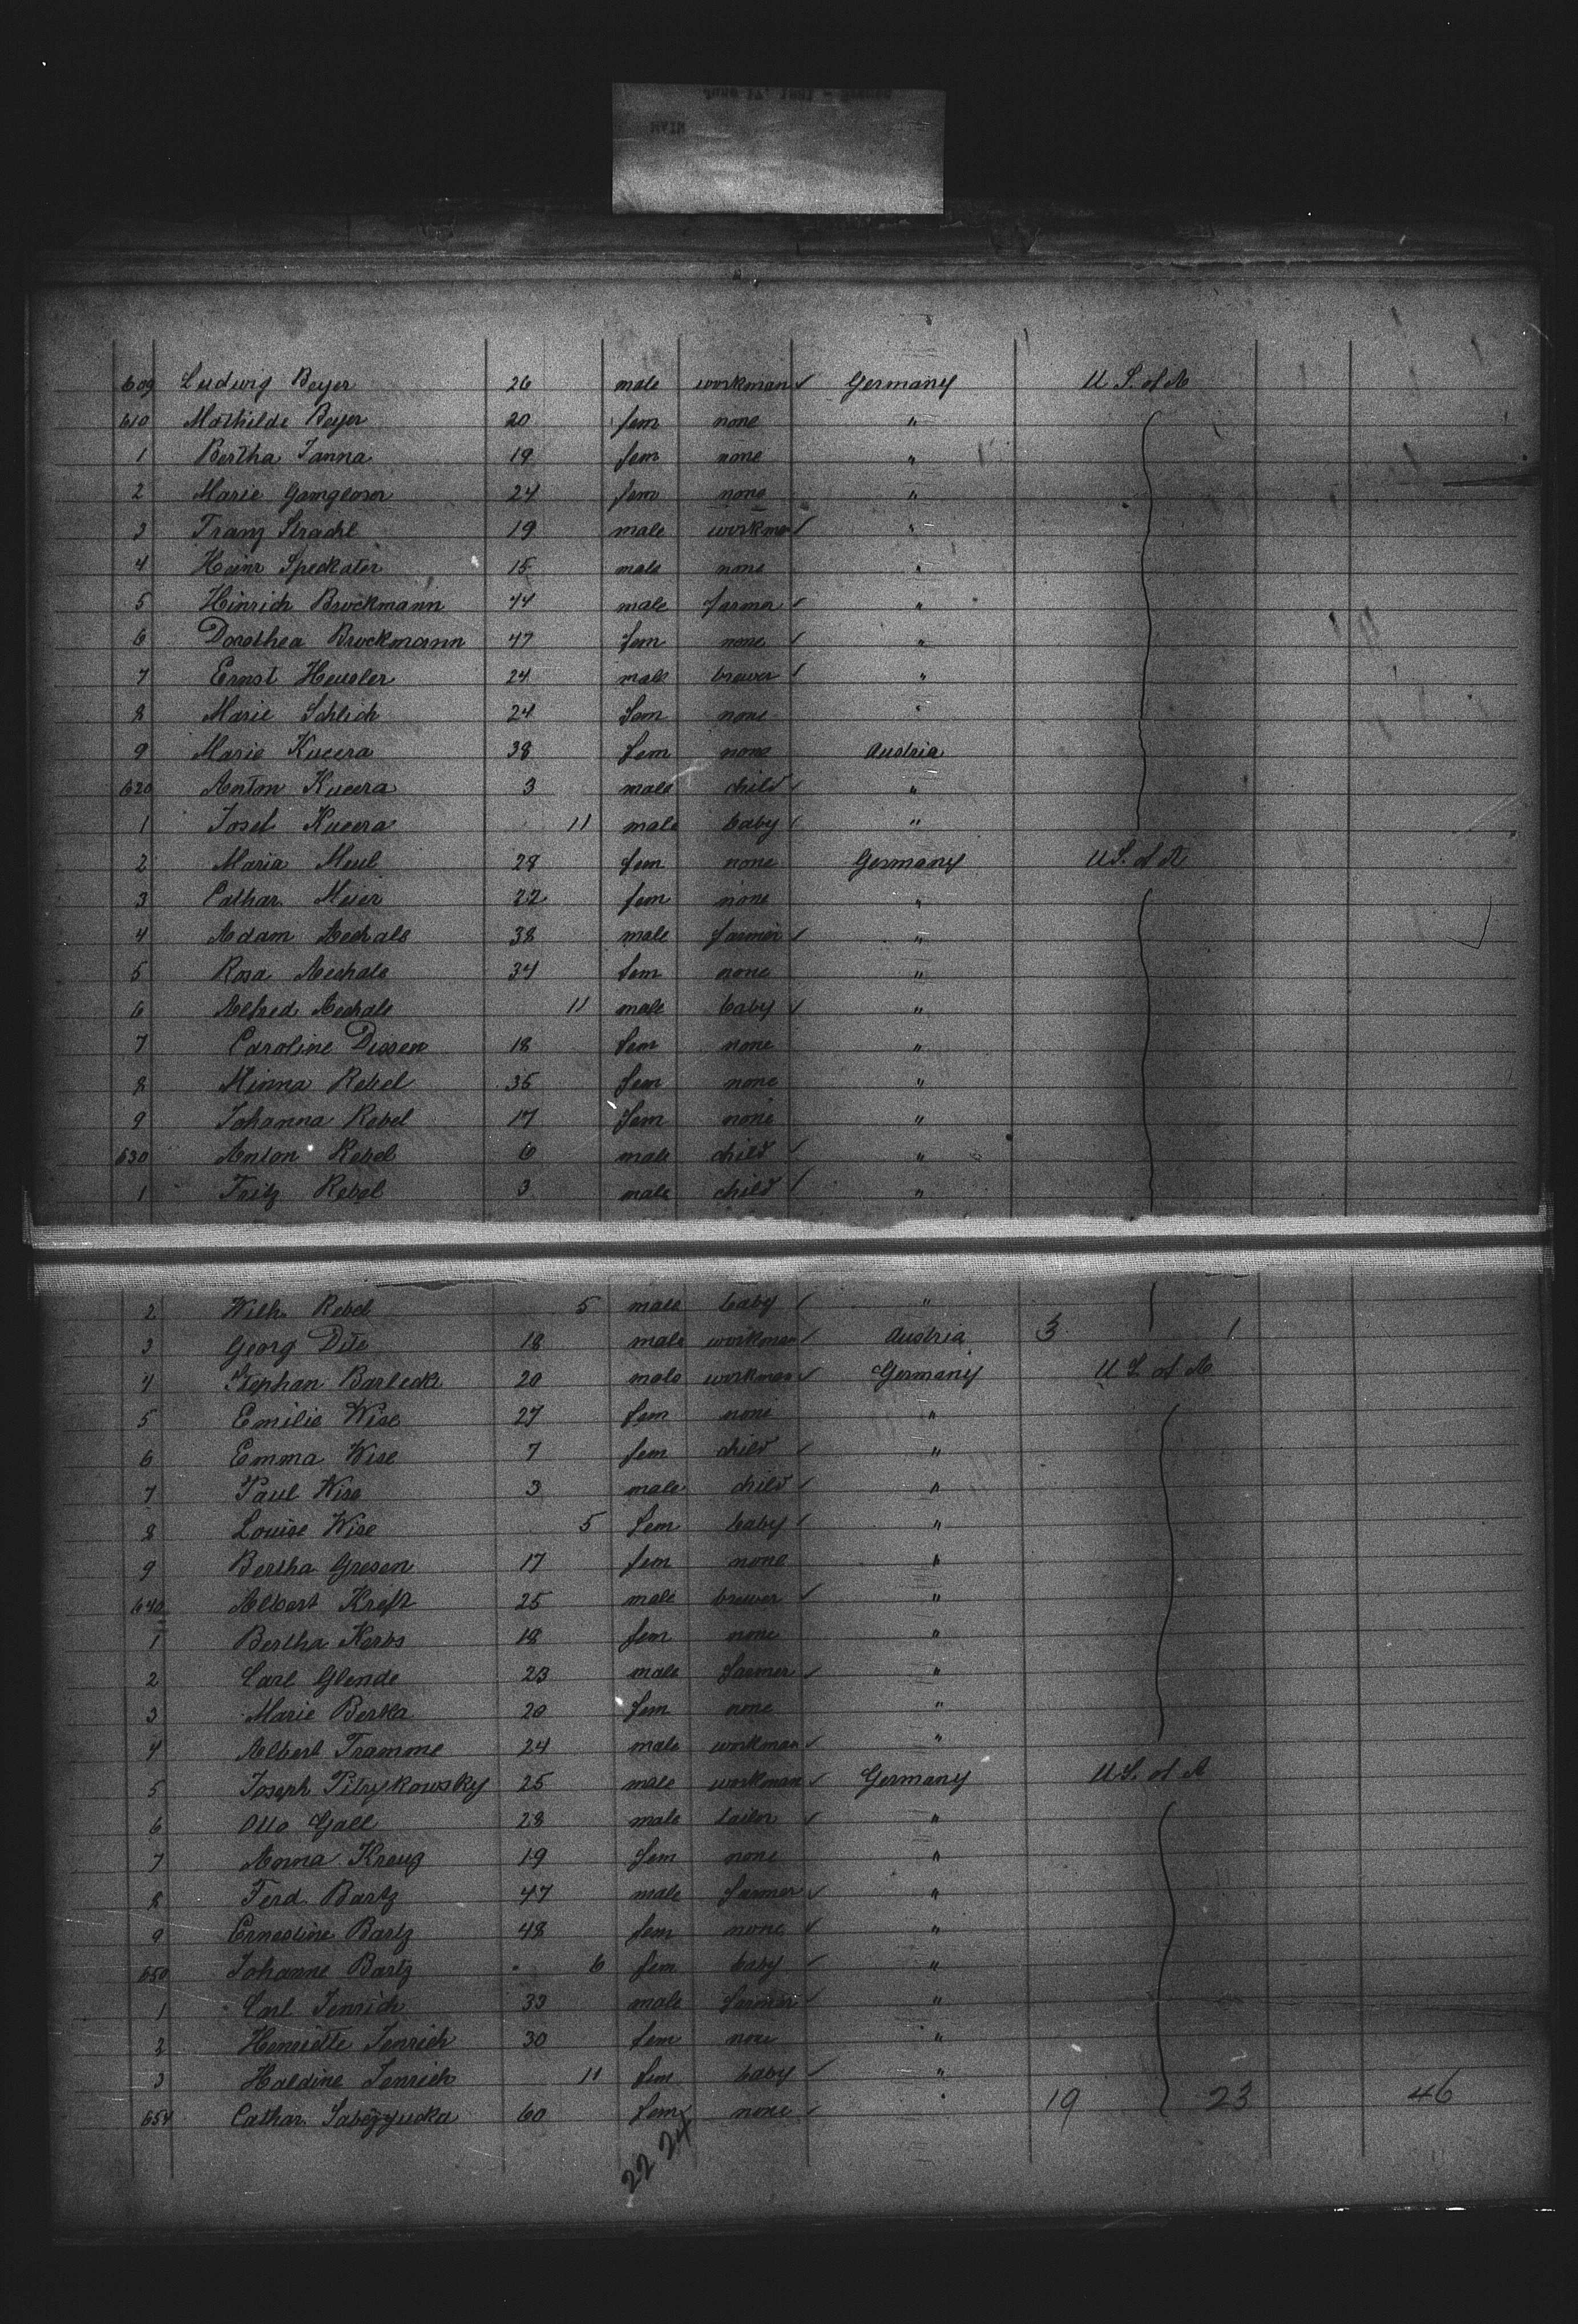 609 Ludwig Beyer 26 male workman Germany U.S. of A
610 Mathilde Beyer 20 fem none "
1 Bertha Janna 19 fem none "
2 Marie 24 fem none "
3 Franz Strachl 19 male workman "
4 Heinr Speckater 15 male none "
5 Hinrich Brockmann 44 male farmer "
6 Dorothea Brockmann 47 fem none "
7 Ernst Heusler 24 male brewer "
8 Marie Schlich 24 fem none "
9 Marie Kucera 38 fem none Austria
620 Anton Kucera 3 male child "
1 Josef Kucera 11 male baby "
2 Maria Meul 28 fem none Germany U.S. of A
3 Cathar. Meier 22 fem none "
4 Adam 38 male farmer "
5 Rosa 34 fem none "
6 Alfred 11 male baby "
7 Caroline Dissen 18 fem none "
8 Minna Rebel 35 fem none "
9 Johanna Rebel 17 fem none "
630 Anton Rebel 6 male child "
1 Fritz Rebel 3 male child "
2 Wilh. Rebel 5 male baby "
3 Georg Dite 18 male workman Austria 3 1
4 Stephan Barlecki 20 male workman Germany U.S. of A
5 Emilie Wise 27 fem none "
6 Emma Wise 7 fem child "
7 Paul Wise 3 male child "
8 Louise Wise 5 fem baby "
9 Bertha Gresen 17 fem none "
640 Albert Kreft 25 male brewer "
1 Bertha Kerbs 18 fem none "
2 Carl Glende 23 male farmer "
3 Marie Berka 20 fem none "
4 Albert Tramme 24 male workman "
5 Joseph Pitrykowsky 25 male workman Germany U.S. of A
6 Otto Gall 28 male tailor "
7 Anna Kreug 19 fem none "
8 Ferd. Bartz 47 male farmer "
9 Ernestine Bartz 48 fem none "
650 Johanne Bartz 6 fem baby "
1 Carl Jenrich 33 male farmer "
2 Henriette Jenrich 30 fem none "
3 Haldine Jenrich 11 fem baby "
654 Cathar. 60 fem none " 19 23 46
22 24